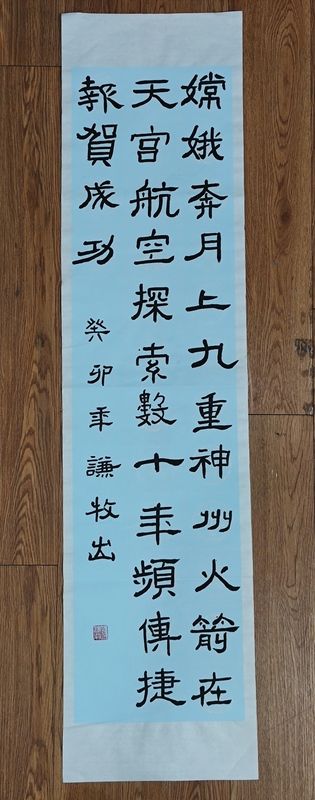 嫦娥奔月上九重神州火箭在
天宫航空探索數十年頻傳捷
報賀成功
癸卯年謙牧出